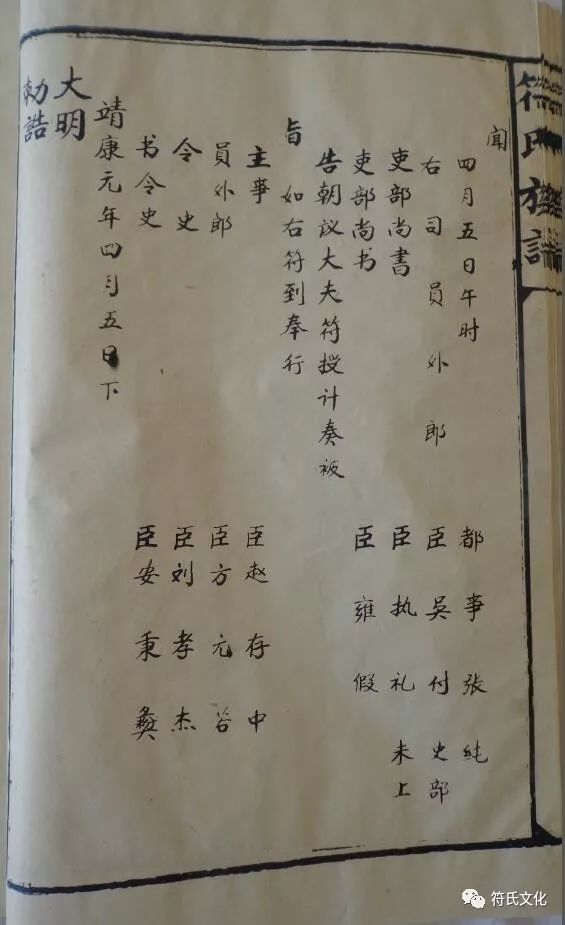 符氏族譜
闻
四月五日午时 都事张纯
右司員外郎 臣吴付史部
吏部尚書 臣执礼未上
吏部尚书 臣雍假
告朝议大夫符授计奏被
旨 如右符到奉行
主事 臣赵存中
員外郎 臣方元谷
令史 臣刘孝杰
书令史 臣安秉彝
靖康元年四月五日下
大明
勅誥
符氏文化